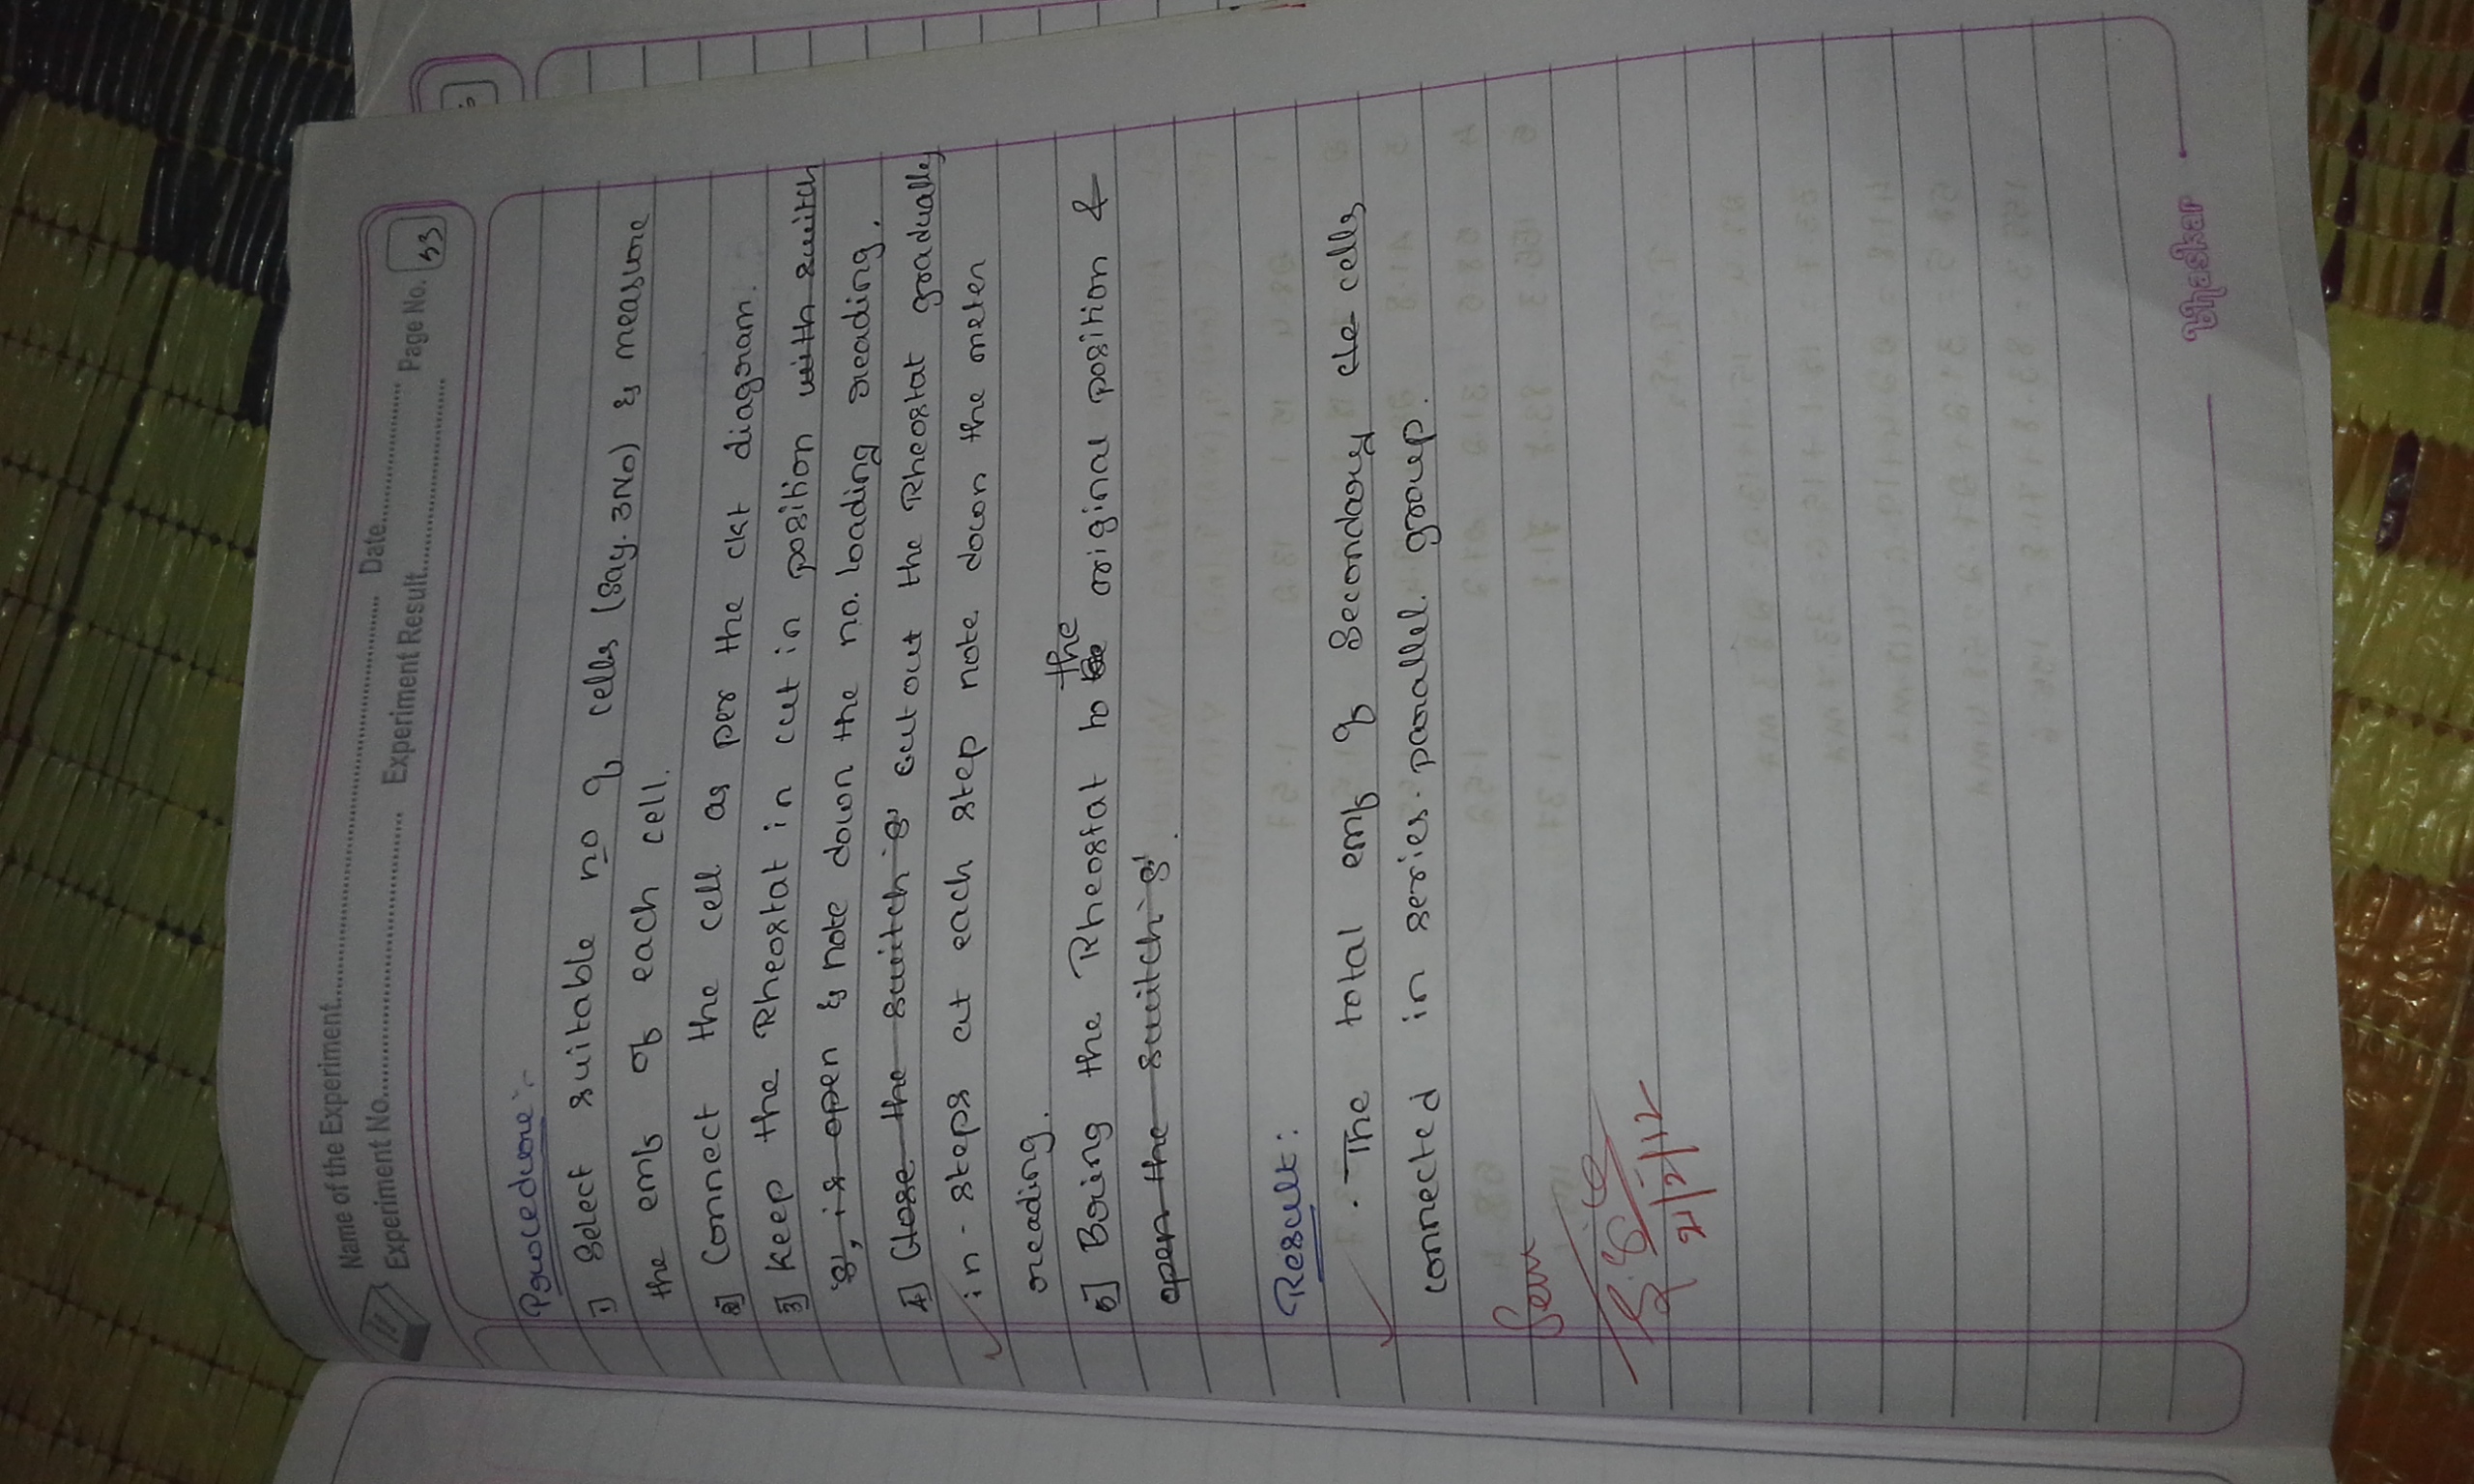 Name of the Experiment.................... Date............
Page No. 33
Experiment No.................... Experiment Result....................
Procedure:-
1) Select suitable no of cells (Say. 3No) & measure
the emf of each cell.
2] Connect the cell as per the ckt diagram.
3] Keep the Rheostat in cut in position with switch
's', is open & note down the no. loading reading.
4] Close the switch 's' cut out the Rheostat gradually
in - steps at each step note down the meter
reading.
the
5] Bring the Rheostat to original position &
open the switch 's'.
Result:
The total emf of Secondary cells
connected in series-parallel group.
Seen
21/2/12
Bhaskar